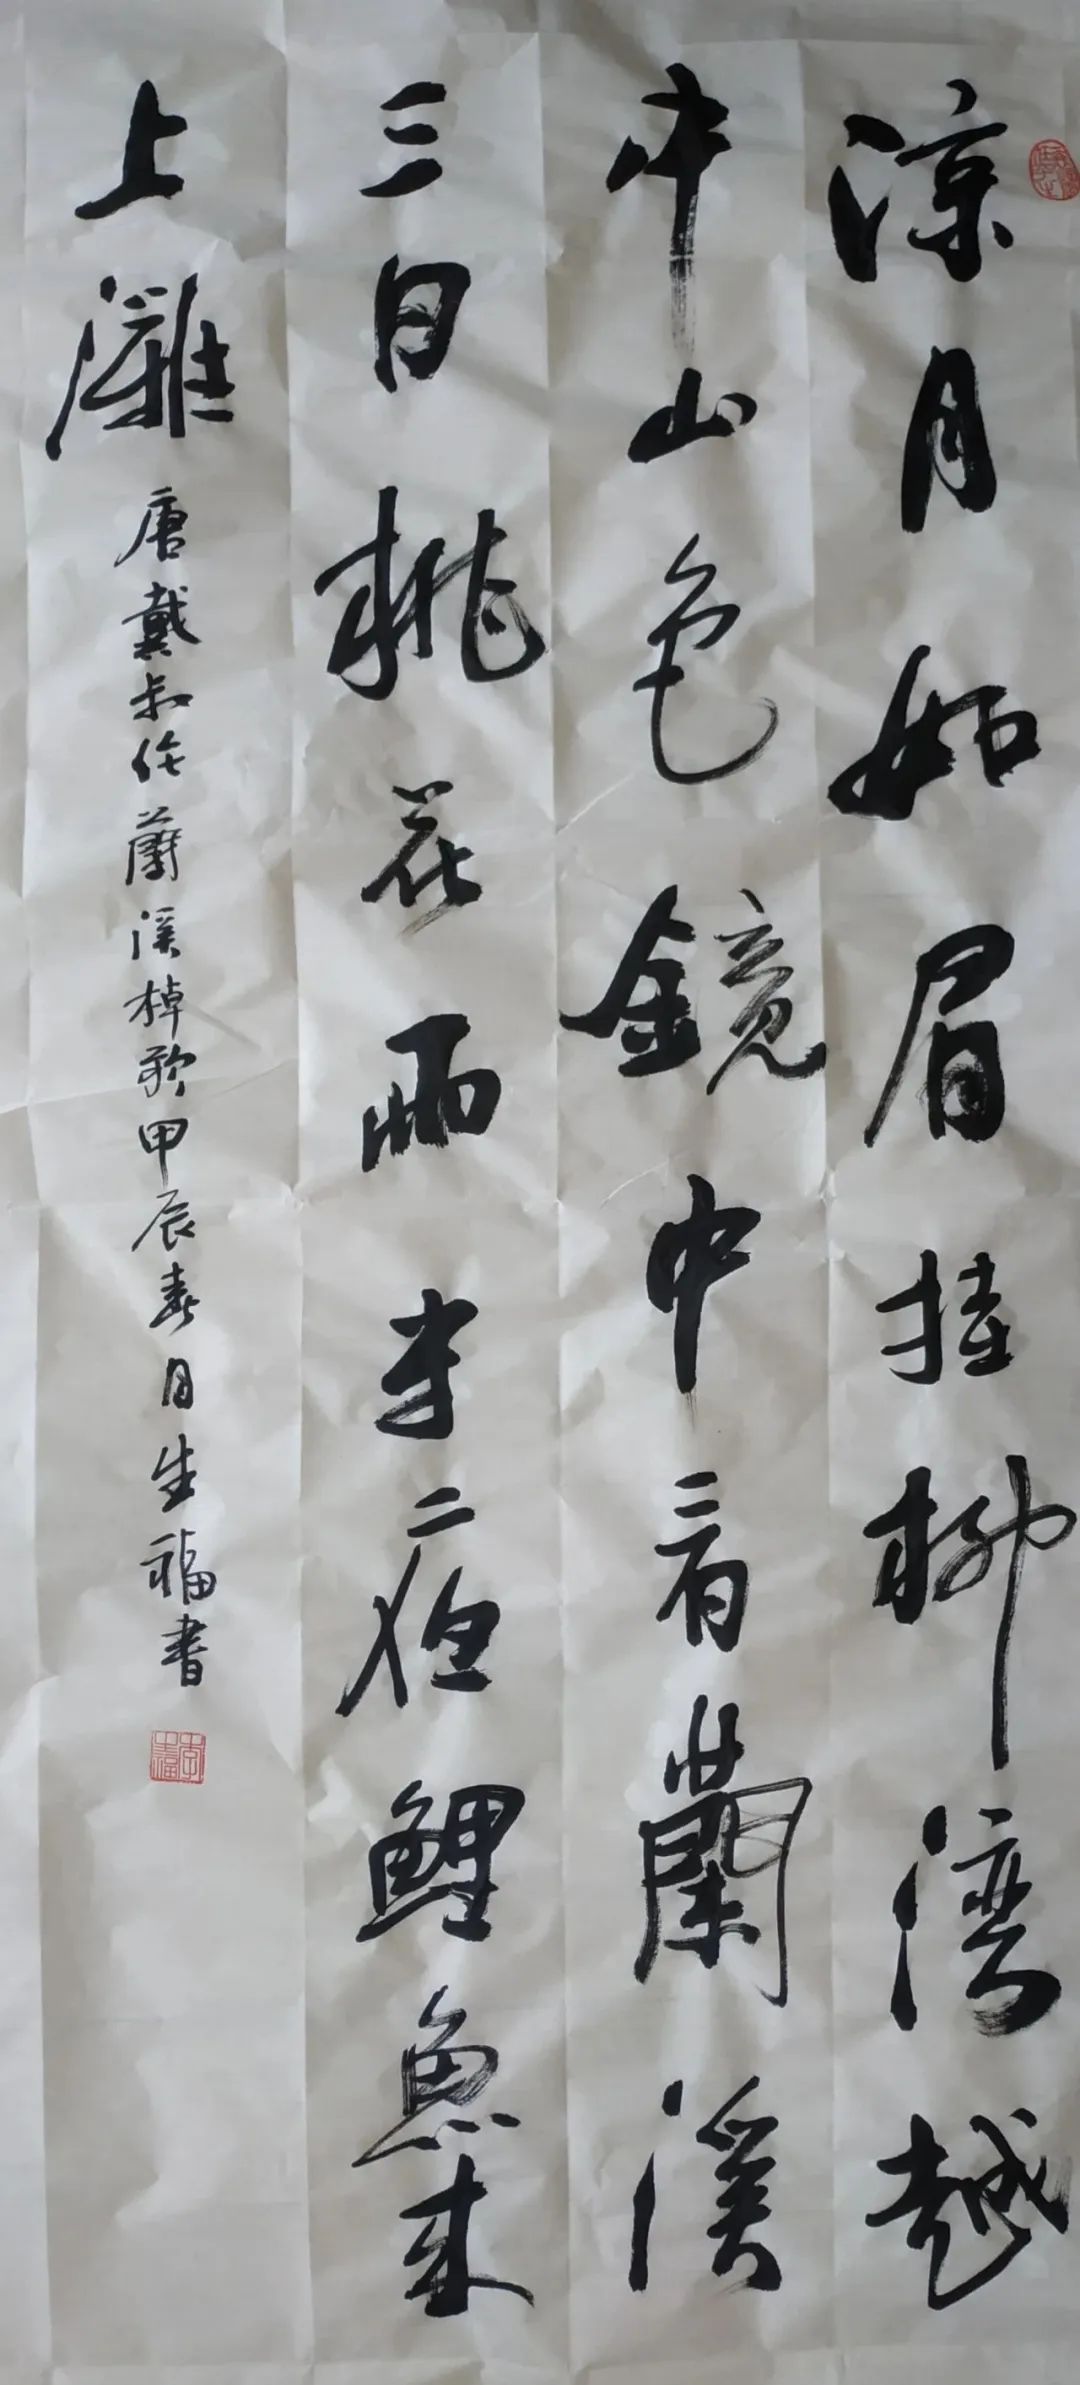 涼月如眉挂柳湾越
中山色鏡中看蘭溪
三日桃花雨半夜鯉魚来
上灘
唐戴叔伦蘭溪棹歌甲辰春月生福書
李生福